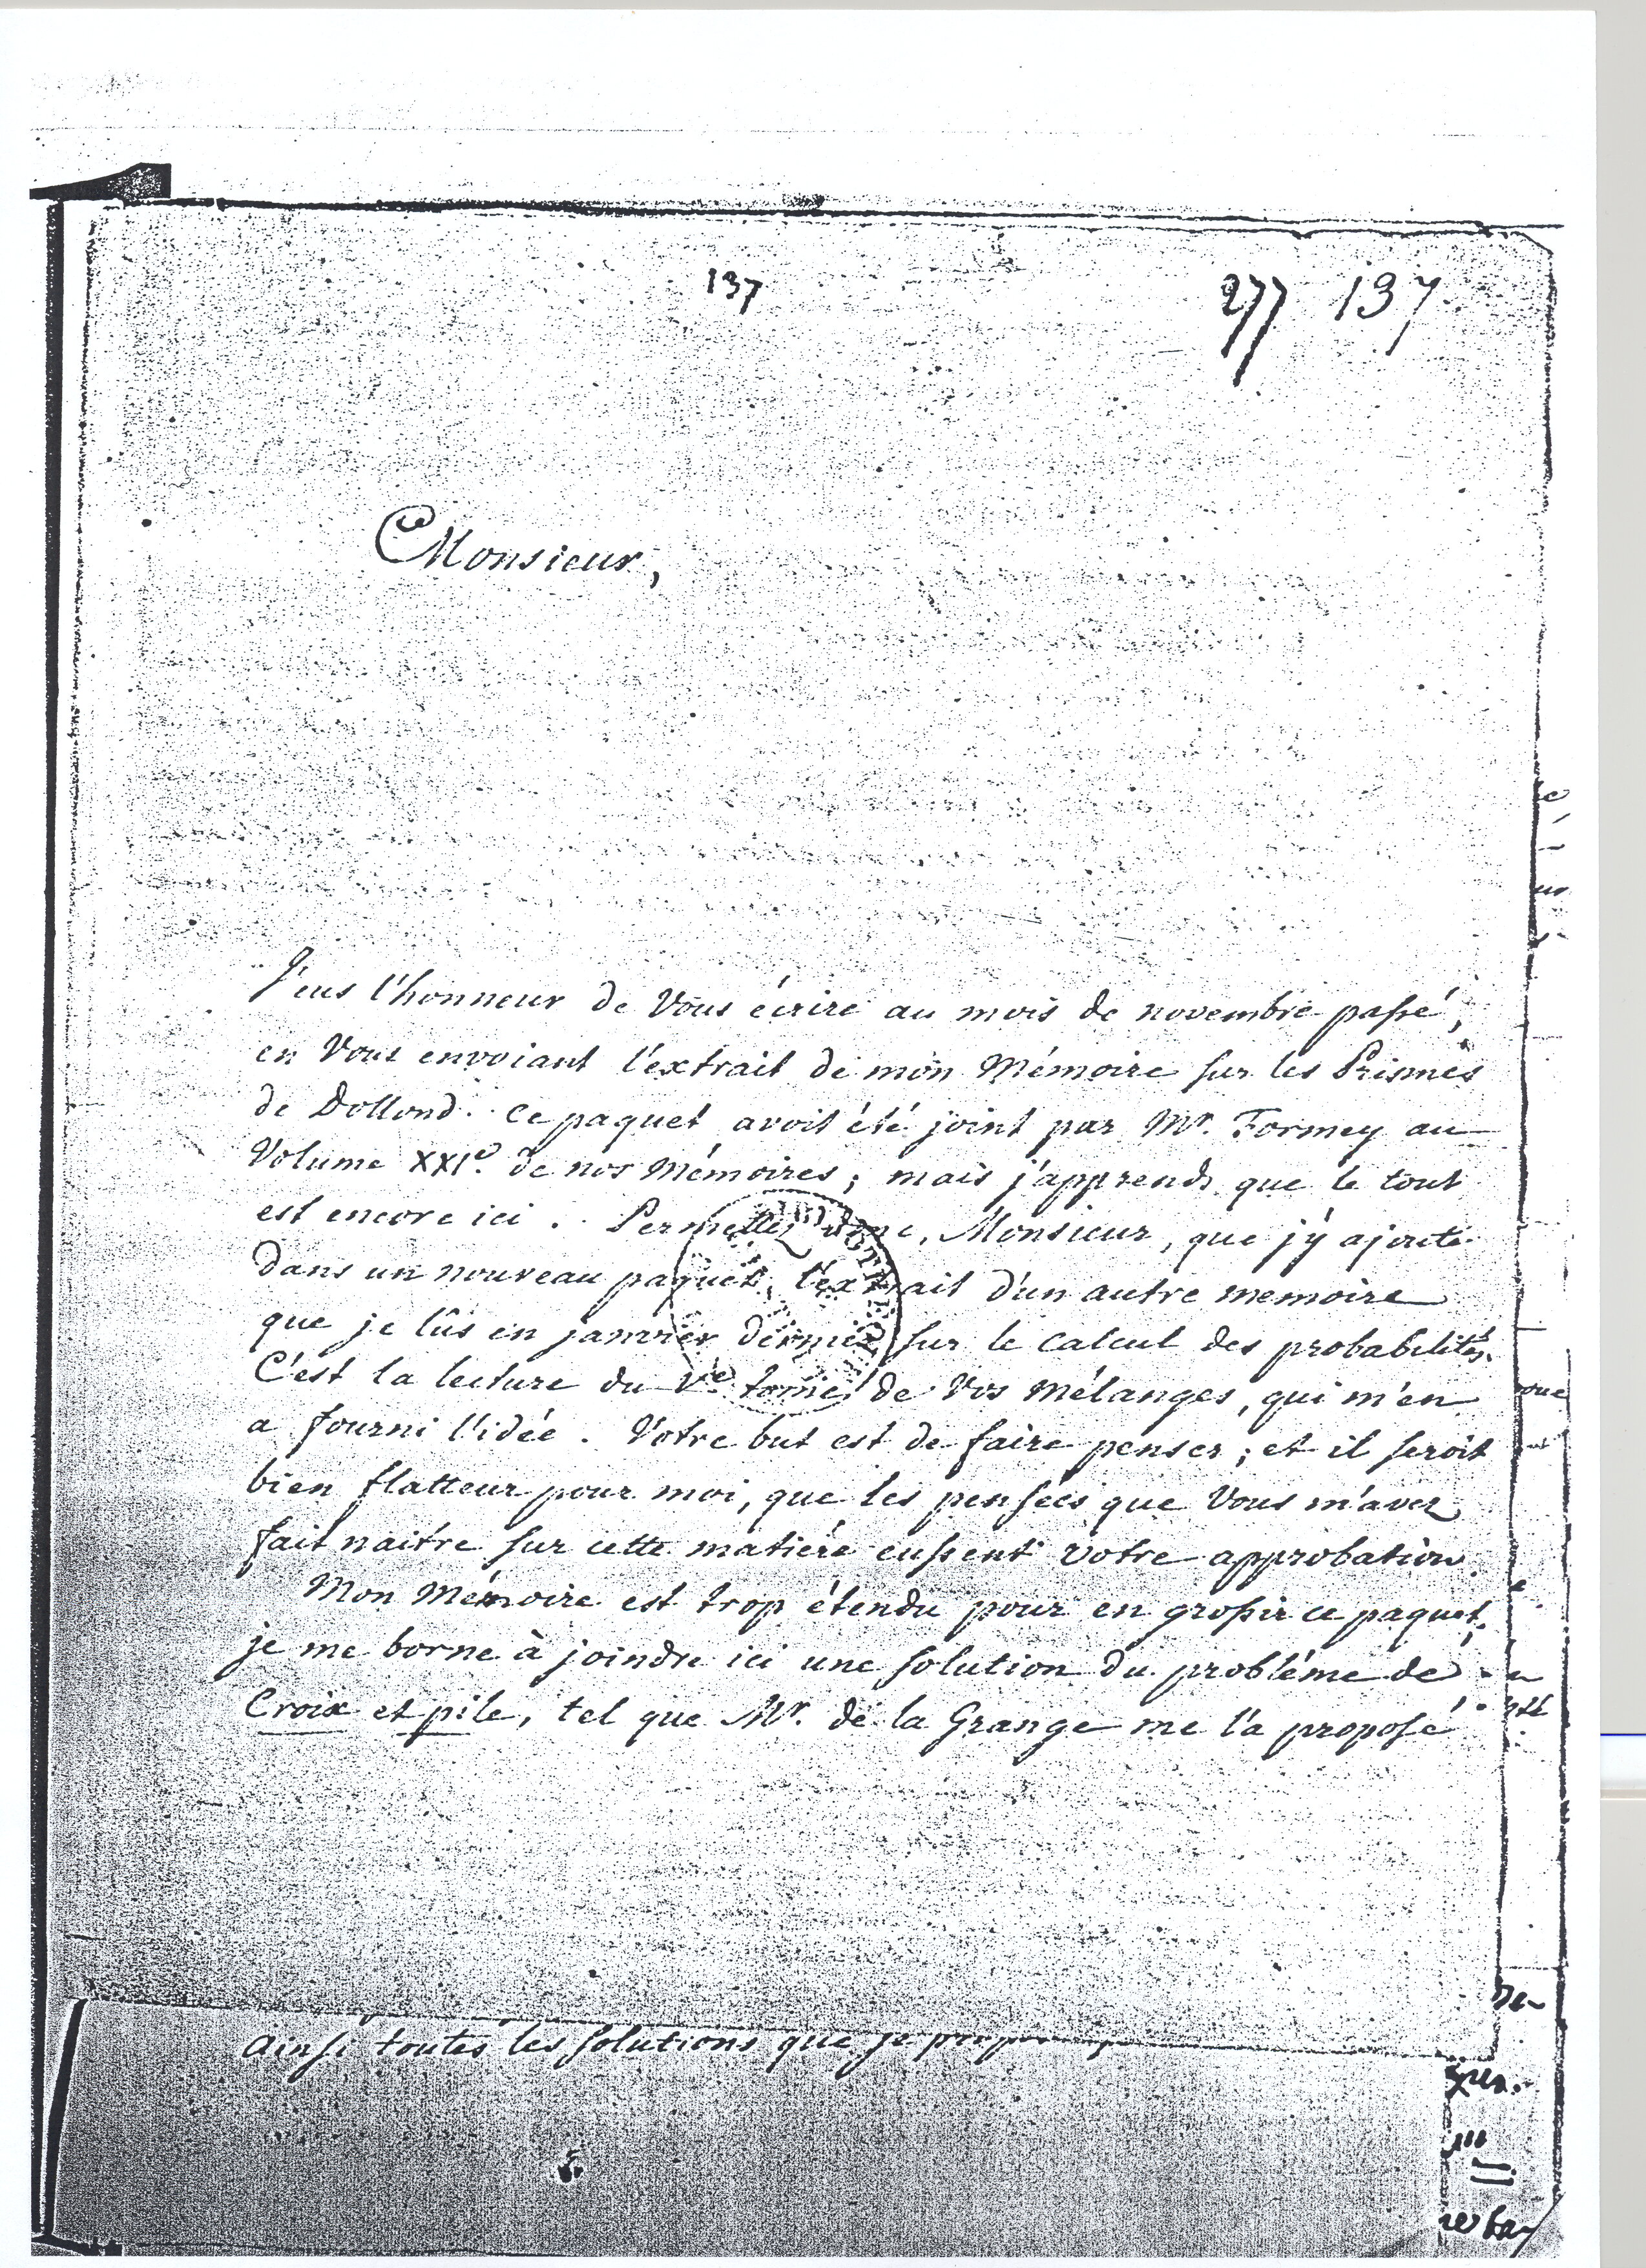 137
277 137
Monsieur,
J'eus l'honneur de Vous écrire au mois de novembre passé,
en Vous envoiant l'extrait de mon Mémoire sur les Prismes
de Dollond. Ce paquet avoit été joint par Mr. Formey au
Volume XXIe. de nos Mémoires; mais j'apprends que le tout
est encore ici. Permettez donc, Monsieur, que j'y ajoute
dans un nouveau paquet, l'extrait d'un autre memoire
que je lûs en janvier dernier sur le calcul des probabilités.
C'est la lecture du Ve. tome de Vos Mélanges, qui m'en
a fourni l'idée. Votre but est de faire penser; et il seroit
bien flatteur pour moi, que les pensées que Vous m'avez
fait naitre sur cette matiére eussent votre approbation.
Mon Mémoire est trop étendu pour en grossir ce paquet.
je me borne à joindre ici une solution du probléme de
Croix et pile, tel que Mr. de la Grange me l'a proposé
Ainsi toutes les solutions que je